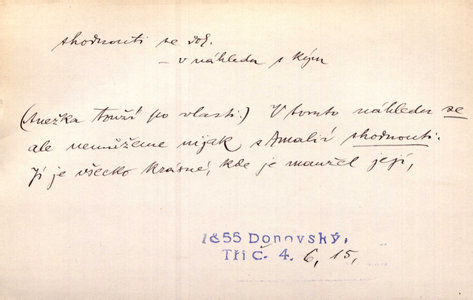 shodnouti se dok.
– v náhledu s kým
(Anežka touží po vlasti.) V tomto náhledu se
ale nemůžeme nijak s Amalií shodnouti.
Jí je všecko krásné, kde je manžel její,
1855 Donovský,
Tři č. 4. 6, 15,